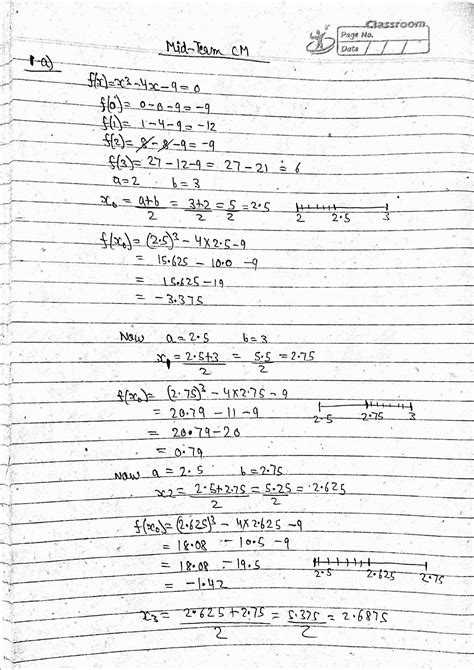 Classroom
Page No.
Date / /
Mid-Team CM
1-a)
f(x)=x³-4x-9=0
f(0)= 0-0-9=-9
f(1)= 1-4-9=-12
f(2)= 8-8-9=-9
f(3)= 27-12-9= 27-21 = 6
a=2 b=3
x₀ = a+b/2 = 3+2/2 = 5/2 = 2.5
2 2.5 3
f(x₀)= (2.5)³ - 4×2.5-9
= 15.625 - 10.0 -9
= 15.625-19
= -3.375
Now a=2.5 b=3
x₁ = 2.5+3/2 = 5.5/2 = 2.75
f(x₀)= (2.75)³ - 4×2.75 - 9
= 20.79 - 11 - 9
2.5 2.75 3
= 20.79-20
= 0.79
Now a = 2.5 b=2.75
x2 = 2.5+2.75/2 = 5.25/2 = 2.625
f(x₀)= (2.625)³ - 4×2.625 -9
= 18.08 - 10.5 - 9
= 18.08 - 19.5
2.5 2.625 2.75
= -1.42
x₃ = 2.625+2.75/2 = 5.375/2 = 2.6875